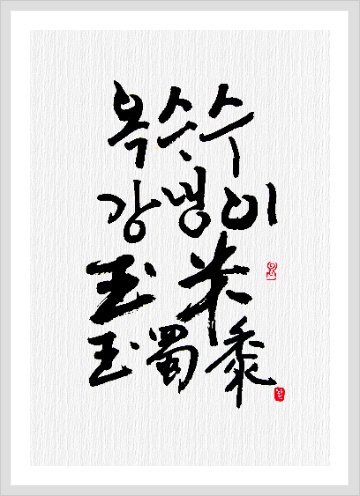 옥수수
강냉이
玉米
玉蜀黍